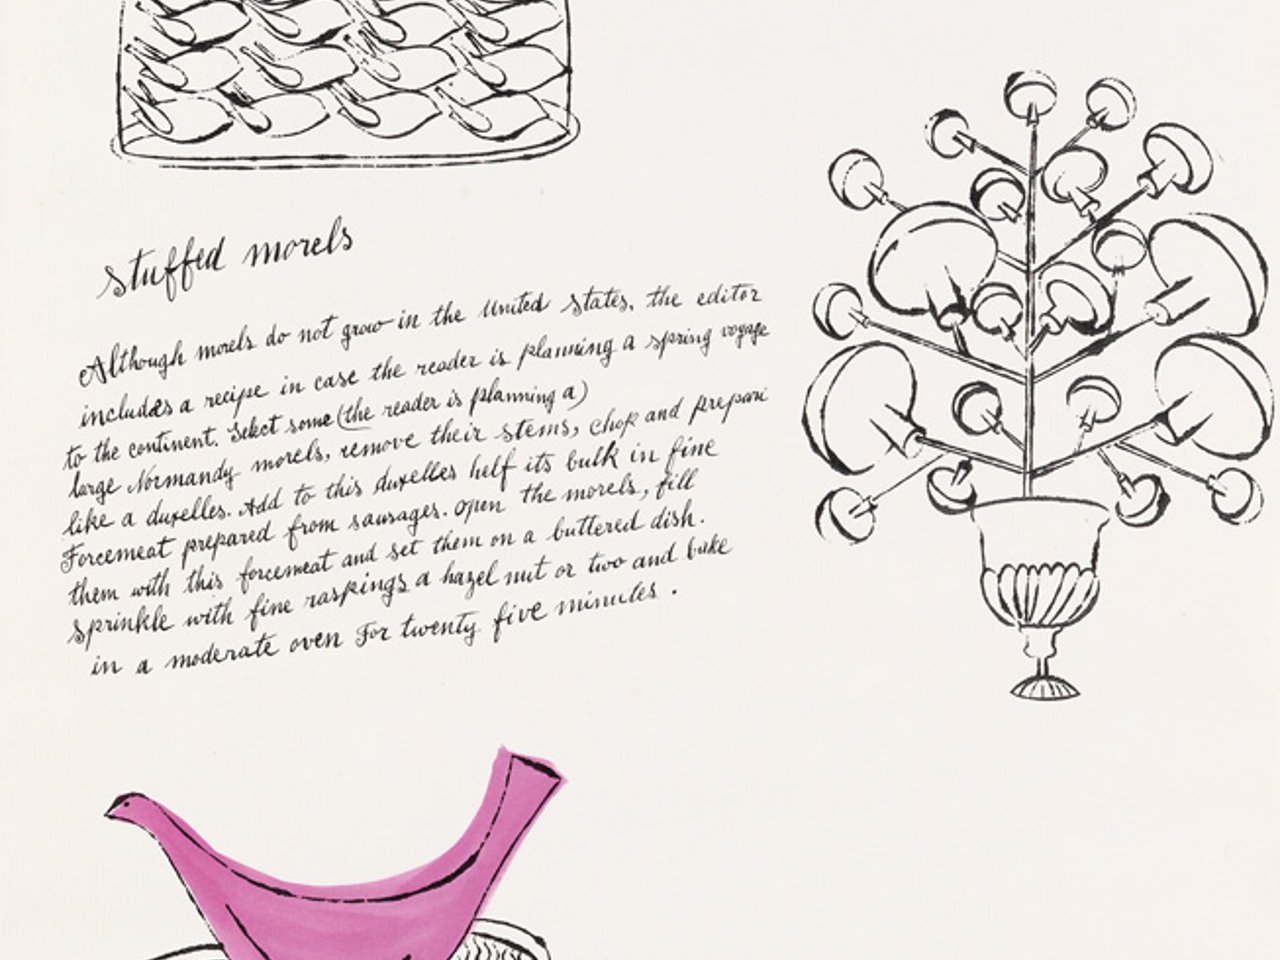 stuffed morels
Although morels do not grow in the United States, the editor
includes a recipe in case the reader is planning a spring voyage
to the continent. Select some (the reader is planning a)
large Normandy morels, remove their stems, chop and prepare
like a duxelles. Add to this duxelles helf its bulk in fine
Forcemeat prepared from sausages. open the morels, fill
them with this forcemeat and set them on a buttered dish.
Sprinkle with fine raspings a hazel nut or two and bake
in a moderate oven For twenty five minutes.